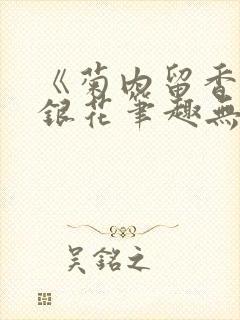 《菊内留香
銀花筆趣無
吳銘之